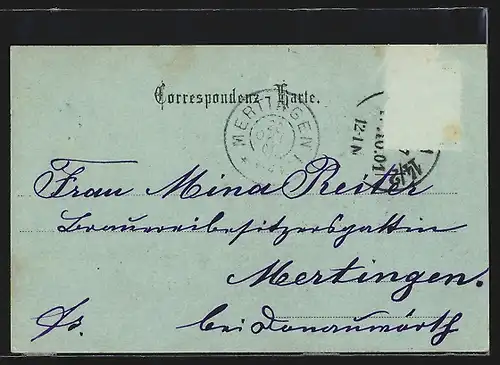 Correspondenz-Karte.
MERTINGEN
12-1 N
Frau Mina Reiter
Brauereibesitzersgattin
Mertingen.
bei Donauwörth